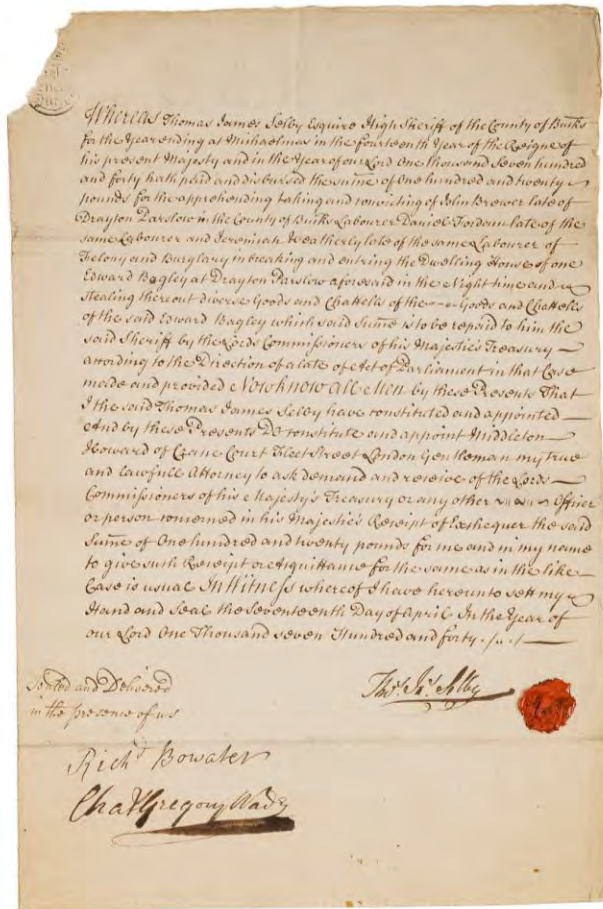 Whereas Thomas James Selby Esquire High Sheriff of the County of Bucks
for the Year ending at Michaelmas in the fourteenth Year of the Reigne of
his present Majesty and in the Year of our Lord One thousand Seven hundred
and forty hath paid and disbursed the sume of One hundred and twenty
pounds for the apprehending taking and convicting of John Brewer late of
Drayton Parslow in the County of Bucks Labourer Daniel Fordam late of the
same Labourer and Jeremiah Weatherly late of the same Labourer of
Felony and Burglary in breaking and entring the Dwelling House of one
Edward Bagley at Drayton Parslow aforesaid in the Night time and
Stealing thereout diverse Goods and Chattells of the Goods and Chattells
of the said Edward Bagley which said sume is to be repaid to him the
said Sheriff by the Lords Commissioners of his Majestie's Treasury
according to the Direction of a late of Act of Parliament in that Case
made and provided Now know all Men by these Presents That
I the said Thomas James Selby have constituted and appointed
And by these Presents Do constitute and appoint Middleton
Howard of Crane Court Fleet Street London Gentleman my true
and lawfull Attorney to ask demand and receive of the Lords
Commissioners of his Majesty's Treasury or any other Officer
or person concerned in his Majestie's Receipt of Exchequer the said
Sume of One hundred and twenty pounds for me and in my name
to give such Receipt or Acquittance for the same as in the like
Case is usual In Witness whereof I have hereunto sett my
Hand and Seal the Seventeenth Day of April In the Year of
our Lord One Thousand seven Hundred and forty
Sealed and Delivered
in the presence of us
Thos. Jas. Selby
Richd Bowater
Chas Gregory Wade